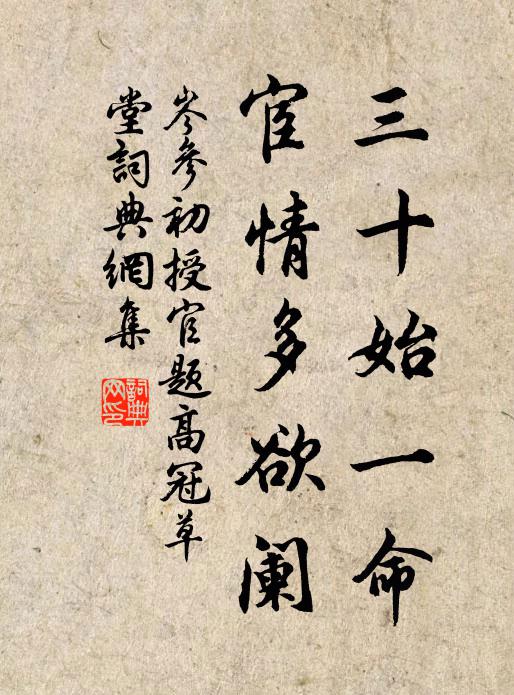 三十始一命
宦情多欲阑
岑參初授官題高冠草
堂詞典網集
詞典
网印